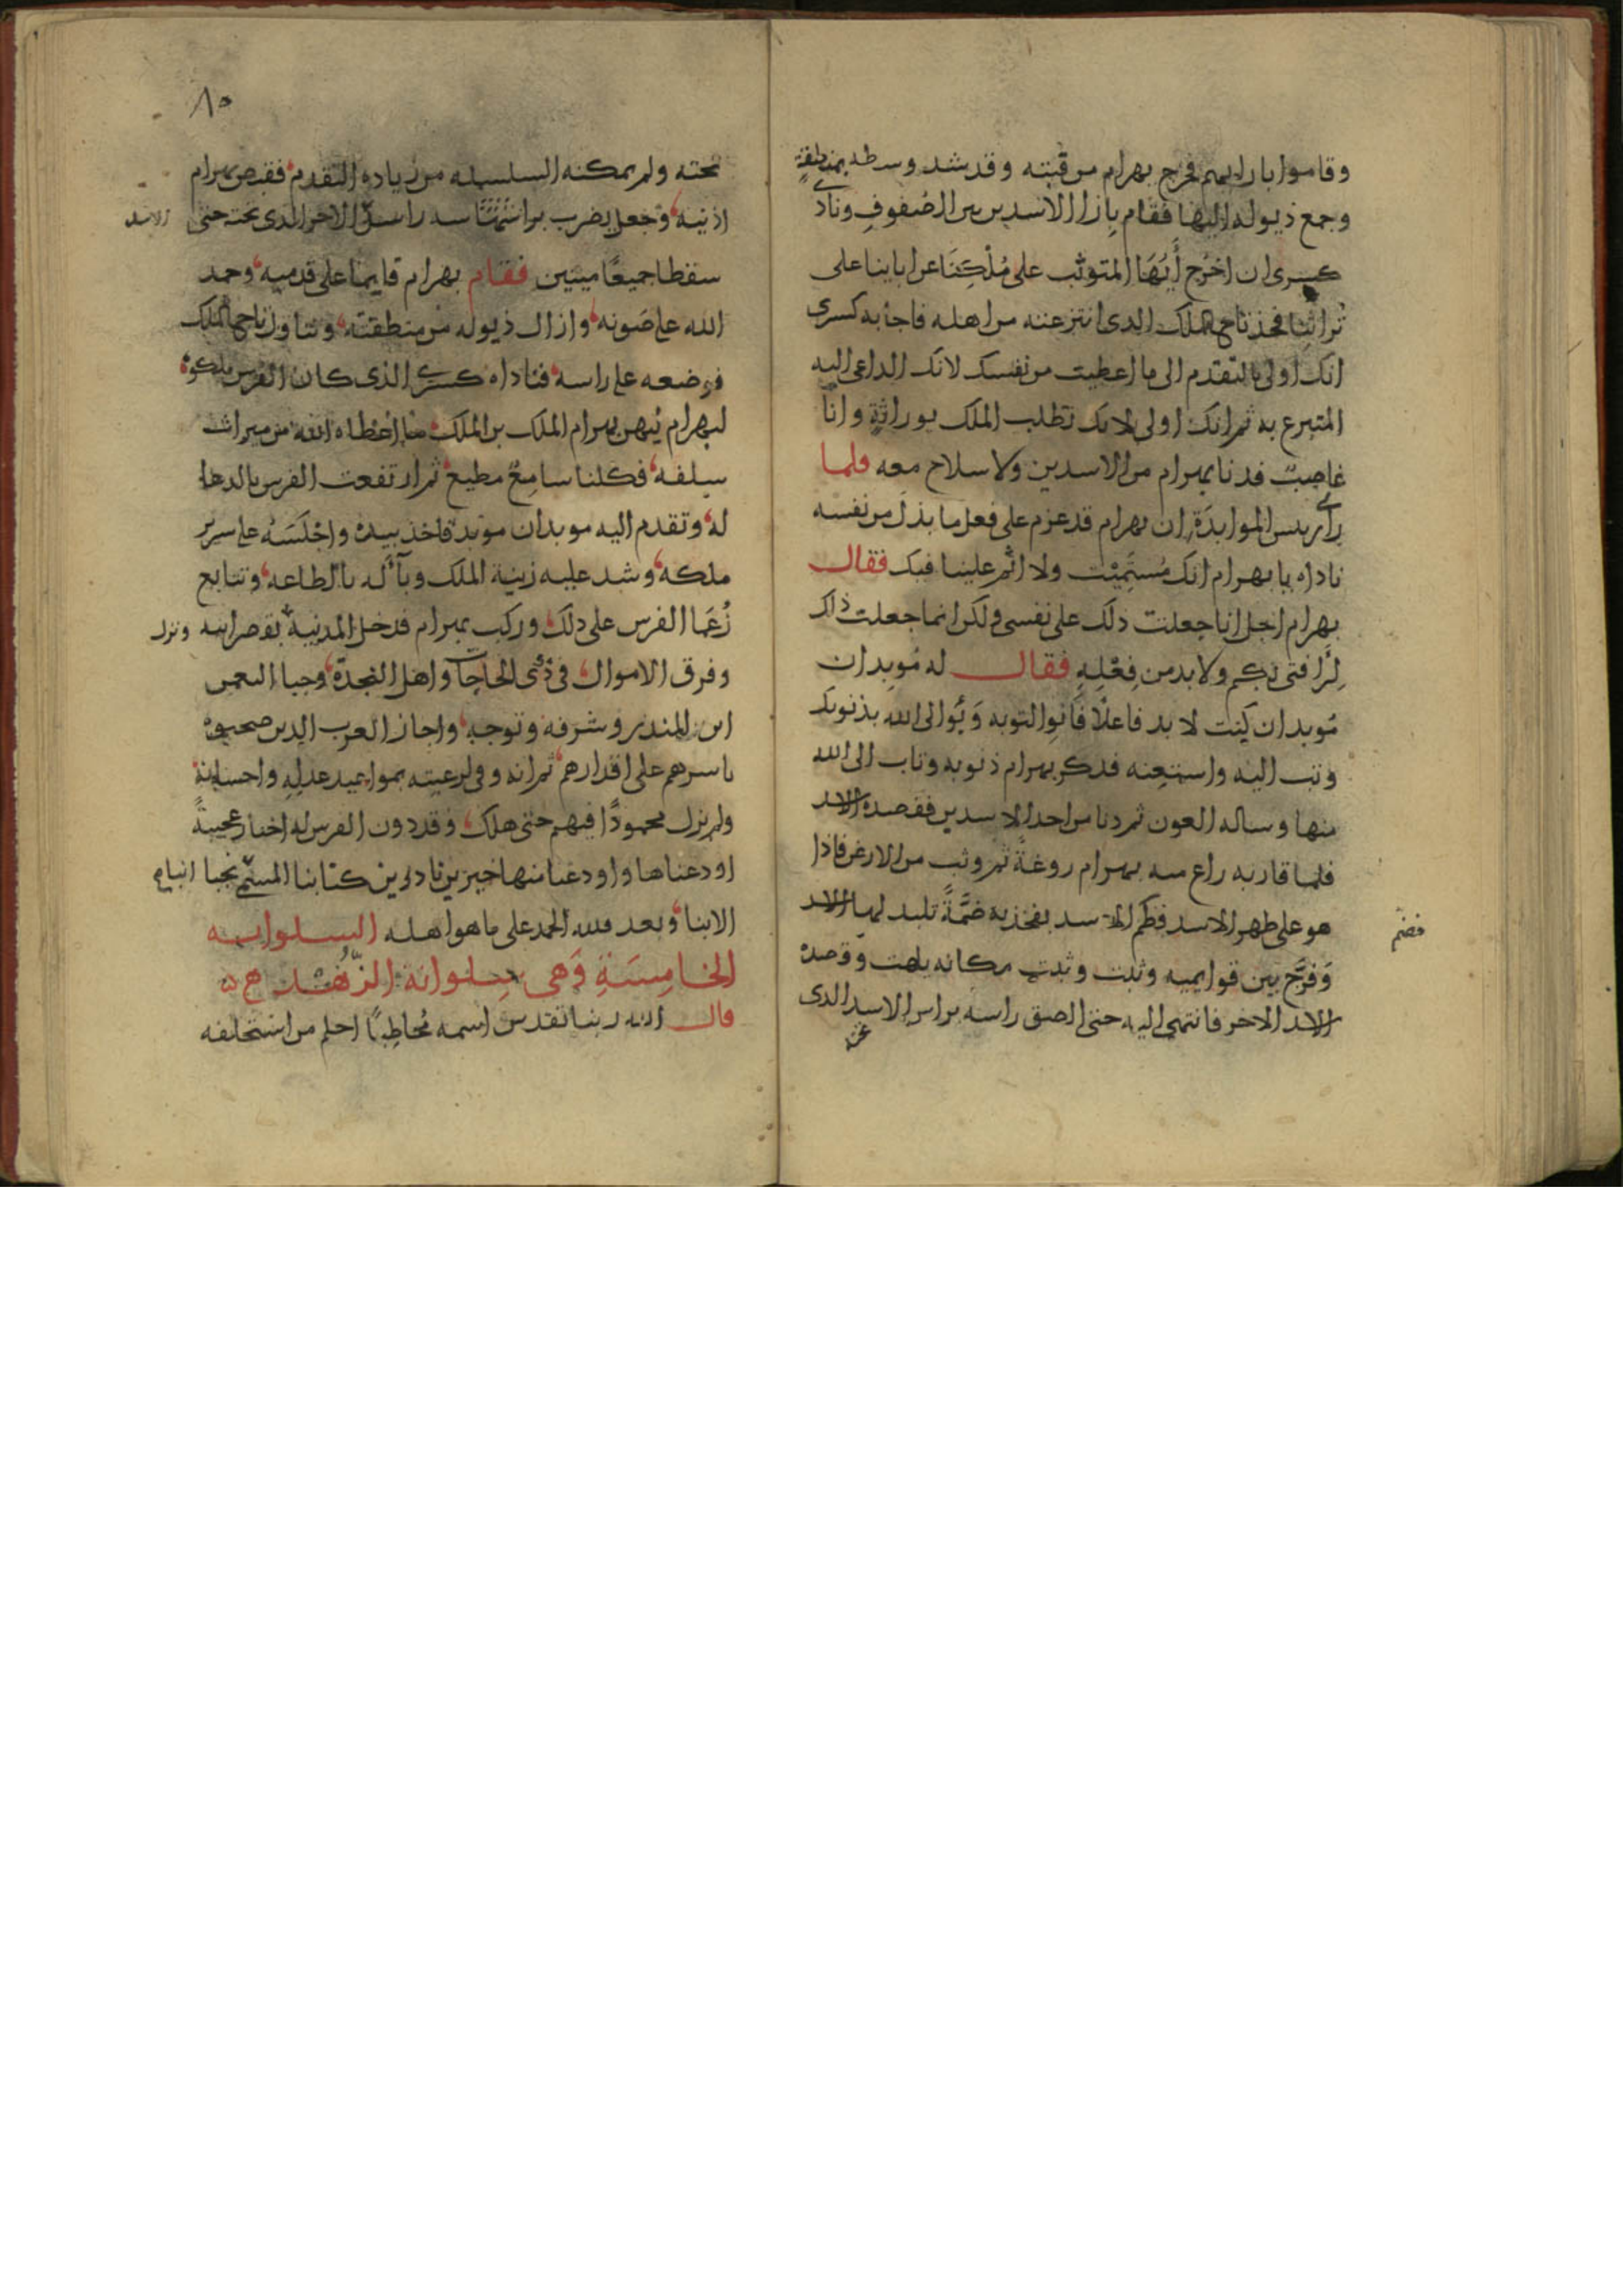 وقاموا بازايهم فخرج بهرام من قبته وقد شد وسطه بمنطقةٍ
وجمع ذيوله اليها فقام بازا الاسدين بين الصفوفِ ونادي
كسرى ان اخرج أيُهَا المتوثب على مُلكِنَا عن اباينا على
تراثنا فخذ تاج الملك الدى انتزعته من اهله فاجأبه كسرى
انك اولى بالتقدم الى ما اعطيت من نفسك لانك الداعى اليه
المتبرع به ثم انك اولى لانك تطلب الملك بوراثةٍ وانا
غاصبٌ فدنا بهرام من الاسدين ولا سلاح معه فلما
راي ريس الموابذة ان بهرام قد عزم على فعل ما بذل من نفسه
ناداه يا بهرام انك مُستَمِيْت ولا اثم علينا فيك فقال
بهرام اجل انا جعلت دلك على نفسى ولكن انما جعلت ذاك
ولا بد من فِعْلِهِ فقال له مُوبدان
مُوبدان كنت لا بد فاعلًا فانوا التوبه وَبُؤ الى الله بذنوبك
وتب اليه واستعنه فدكر بهرام ذنوبه وتاب الى الله
منها وساله العون ثم دنا من احد الاسدين فقصده الاسد
فلما قاربه راغ منه بهرام روغةً ثم وثب من الارض فاذا
هو على ظهر الاسد الاسد بفخذيه ضمَّةً تلبد لها الاسد
فضم
وَفرَّج بين قوايمه وثبت مكانه يلهث وقصده
الاسد الاخر فانتهى اليه حتى الصق راسه براس الاسد الدى
٨٥
تحته ولم يمكنه السلسله من زيادة التقدم فقبض بهرام
اذنيه وجعل يضرب براس الاخر الدى تحته حتى
الاسد
سقطا جميعًا ميتين فقام بهرام قايما على قدميه وحمد
الله على صونه وازال ذيوله من منطقته وتناول تاج الملك
فوضعه على راسه فناداه كسرى الذى كان الفرس ملكوه
لبهرام ليهن بهرام الملك بن الملك ما اعطاه الله من ميراث
سلفه فكلنا سامعٌ مطيعٌ ثم ارتفعت الفرس بالدعا
له وتقدم اليه موبدان موبد فاخذ بيده واجْلَسَهُ على سرير
ملكه وشد عليه زينة الملك له بالطاعه وتتابع
زُعَمَا الفرس على دلك وركب بهرام فدخل المدينة بقصر ابيه ونزل
وفرق الاموال في ذوى الحاجات واهل النجدة وحبا النعمن
ابن المندر وشرفه وتوجه واجاز العرب الدين صحبوه
باسرهم على اقدارهم ثم انه وفى لرعيته بمواعيد عدله واحسانه
ولم يزل محمودًا فيهم حتى هلك وقد دون الفرس له اخبارً عجيبةً
اودعناها واودعنا منها خبرين نادرين كتابنا المسمى نجبا انباء
الابنا وبعد فلله الحمد على ما هو اهله السلوانه
الخامِسَةِ وَهى سلوانة الزُّهْد
قال الله ربنا تقدس اسمه مُخاطِبًا احلم من استخلفه